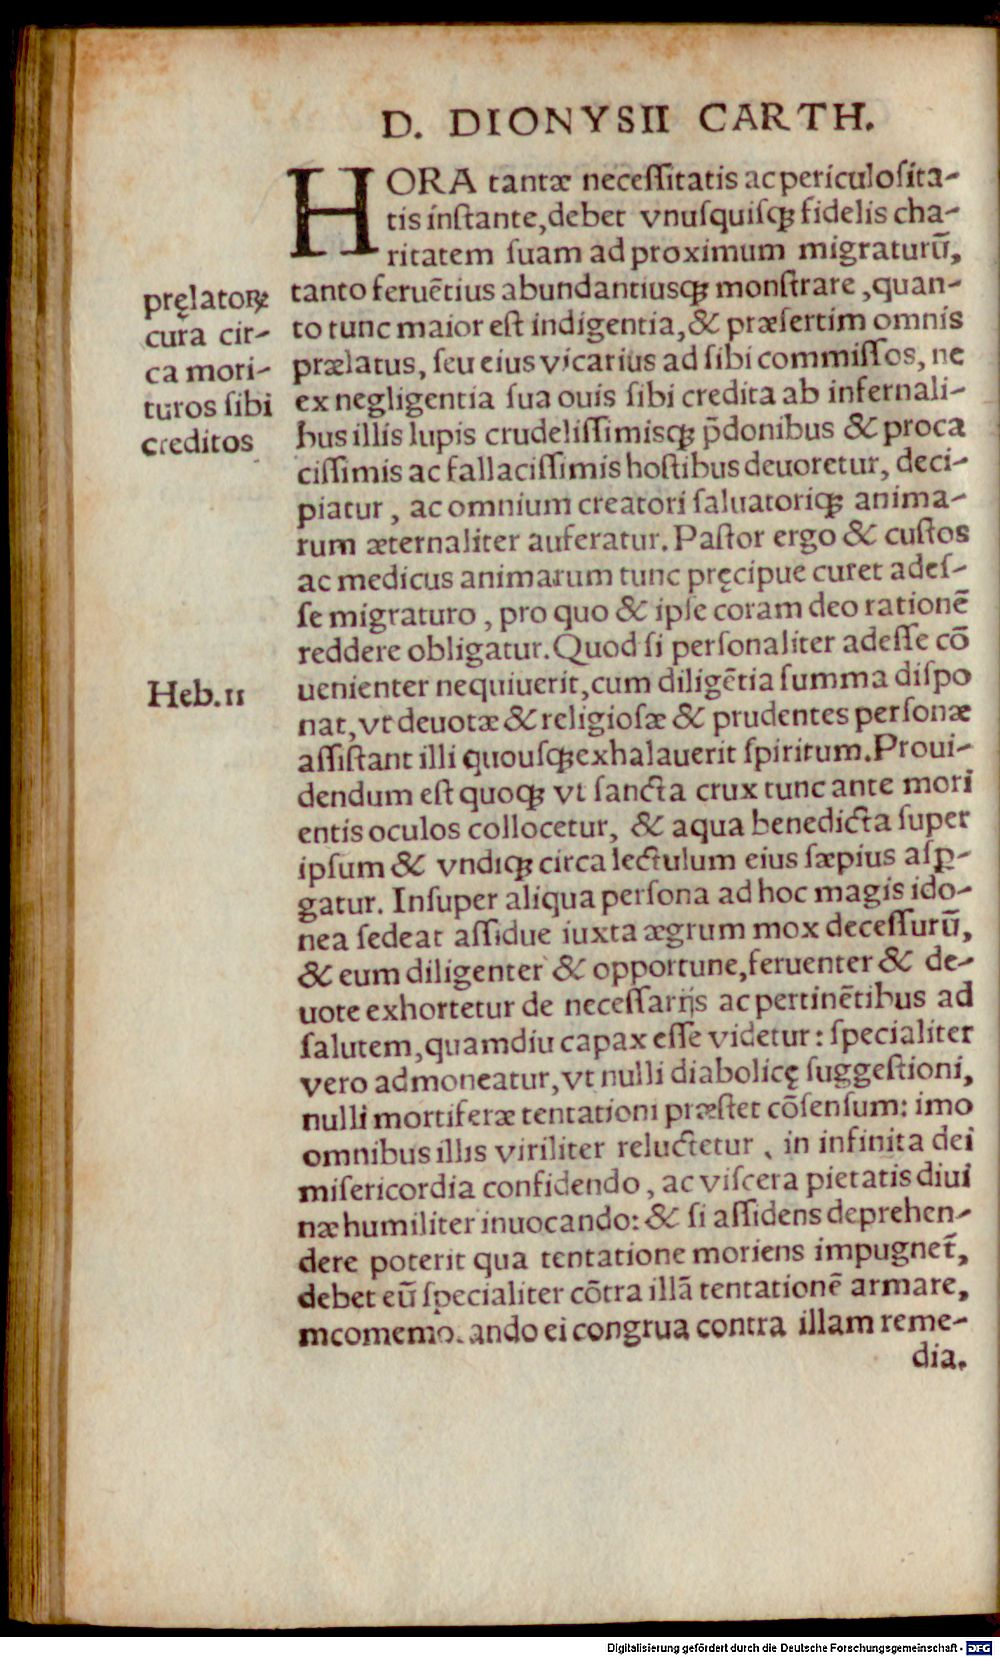 D. DIONYSII CARTH.
HORA tantæ neceſſitatis ac periculoſita-
tis inſtante, debet vnuſquiſqꝫ fidelis cha-
ritatem ſuam ad proximum migraturū,
tanto feruētius abundantiusqꝫ monſtrare, quan-
to tunc maior eſt indigentia, & præſertim omnis
prælatus, ſeu eius vicarius ad ſibi commiſſos, ne
ex negligentia ſua ouis ſibi credita ab infernali-
bus illis lupis crudeliſſimisqꝫ p̄donibus & proca
ciſſimis ac fallaciſſimis hoſtibus deuoretur, deci-
piatur, ac omnium creatori ſaluatoriqꝫ anima-
rum æternaliter auferatur. Paſtor ergo & cuſtos
ac medicus animarum tunc pręcipue curet adeſ-
ſe migraturo, pro quo & ipſe coram deo rationē
reddere obligatur. Quod ſi perſonaliter adeſſe cō
uenienter nequiuerit, cum diligētia ſumma diſpo
nat, vt deuotæ & religioſæ & prudentes perſonæ
aſſiſtant illi quouſqꝫ exhalauerit ſpiritum. Proui-
dendum eſt quoqꝫ vt ſancta crux tunc ante mori
entis oculos collocetur, & aqua benedicta ſuper
ipſum & vndiqꝫ circa lectulum eius ſæpius aſꝑ-
gatur. Inſuper aliqua perſona ad hoc magis ido-
nea ſedeat aſſidue iuxta ægrum mox deceſſurū,
& eum diligenter & opportune, feruenter & de-
uote exhortetur de neceſſarijs ac pertinētibus ad
ſalutem, quamdiu capax eſſe videtur: ſpecialiter
vero admoneatur, vt nulli diabolicę ſuggeſtioni,
nulli mortiferæ tentationi præſtet cōſenſum: imo
omnibus illis viriliter reluctetur, in infinita dei
miſericordia confidendo, ac viſcera pietatis diui
næ humiliter inuocando: & ſi aſſidens deprehen-
dere poterit qua tentatione moriens impugnet̄,
debet eū ſpecialiter cōtra illā tentationē armare,
mcomemo.ando ei congrua contra illam reme-
dia.
pręlatoꝝ
cura cir-
ca mori-
turos ſibi
creditos
Heb.11
Digitalisierung gefördert durch die Deutsche Forschungsgemeinschaft - DFG